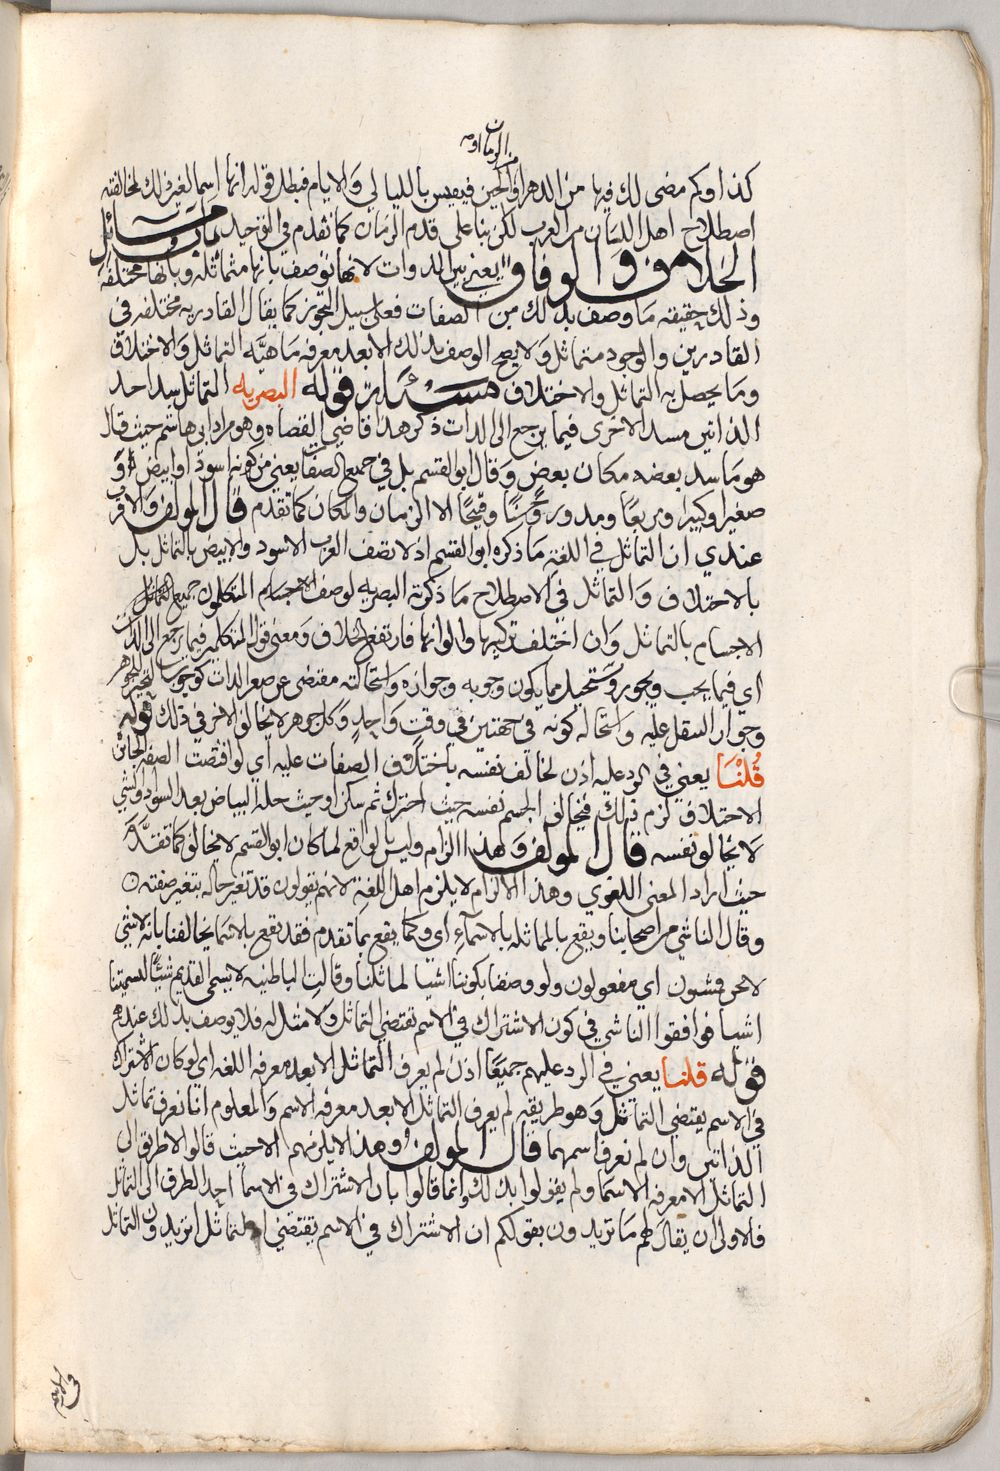 من الزمان او مـ
كذا وكم مضى لك فيها من الدهر او الحين فيقيس بالليالي والايام فبطل قوله انها اسما لغير ذلك لمخالفته
اصطلاح اهل اللسان من العرب لكن بنا على قدم الزمان كما تقدم في التوحيد باب ومسائل
الخلاف والوفاق يعني بين الذوات لانها توصف بانها متماثله وبانها مختلفه
وذلك حقيقه ما وصف بذلك من الصفات فعلى سبيل التجوز كما يقال القادريه مختلفه في
القادرين والوجود متماثل ولا يصح الوصف بذلك الا بعد معرفه ماهيه التماثل والاختلاف
وما يحصل به التماثل والاختلاف مسئله قوله البصريه التماثل سد احد
الذاتين مسد الاخرى فيما يرجع الى الذات ذكر هذا قاضي القضاه وهو مراد ابي هاشم حيث قال
هو ما سد بعضه مكان بعض وقال ابو القسم بل في جميع الصفات يعني من كونه اسود او ابيض او
صغيرا وكبيرا ومربعا ومدور وحسنا وقبيحا الا الزمان والمكان كما تقدم قال المولف والاقرب
عندي ان التماثل في اللغه ما ذكره ابو القسم اذ لا تصف العرب الاسود والابيض بالتماثل بل
بالاختلاف والتماثل في الاصطلاح ما ذكرته البصريه لوصف المتكلمون جميع
الاجسام بالتماثل وان اختلف تركيبها والوانها فارتفع الخلاف ومعنى قول المتكلمين فيما يرجع الى الذات
اي فيما يجب ويجوز ويستحيل مما يكون وجوبه وجوازه واستحالته مقتضى عن صفه الذات كوجوب التحيز للجوهر
وجواز التنقل عليه واستحاله كونه في جهتين في وقت واحد وكل جوهر لا يخالف الاخر في ذلك قوله
قلنا يعني في الرد عليه اذن لخالف نفسه باختلاف الصفات عليه اي لو اقتضت الصفه الجائزه
الاختلاف لزم ذلك فيخالف الجسم نفسه حيث احترك ثم سكن او حيث حله البياض بعد السواد والشي
لا يخالف نفسه قال المولف وهذا الالزام وليس لواقع لما كان ابو القسم لا يخالف كما تقدم
حيث اراد المعنى اللغوي وهذا الالزام لا يلزم اهل اللغه لانهم يقولون قد تغير حاله بتغير صفته
وقال الناشي من اصحابنا ويقع بالمماثله بالاسماء اي وكما يقع بما تقدم فقد يقع بالاسما يخالفنا بانه لا شي
لا نحن فمشيون اي مفعولون ولو وصفنا بكوننا اشيا لماثلنا وقالت الباطنيه لا يسمى القديم شيئا لتسميتنا
اشيا فوافقوا الناشي في كون الاشتراك في الاسم يقتضي التماثل ولا مثل له فلا يوصف بذلك عندهم
قوله قلنا يعني في الرد عليهم جميعا اذن لم يعرف التماثل الا بعد معرفه اللغه اي لو كان الاشتراك
في الاسم يقتضي التماثل وهو طريقه لم يعرف التماثل الا بعد معرفه الاسم والمعلوم اننا نعرف تماثل
الذاتين وان لم نعرف اسمهما قال المولف وهذا لا يلزمهم الا حيث قالوا لا طريق الى
التماثل الا معرفه الاسما ولم يقولوا بذلك وانما قالوا بان الاشتراك في الاسما احد الطرق الى التماثل
فالاولى ان يقال لهم ما تريدون بقولكم ان الاشتراك في الاسم يقتضي التماثل اتريدون التماثل